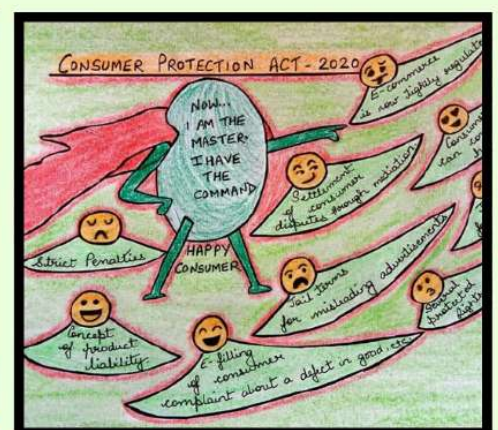 CONSUMER PROTECTION ACT - 2020
NOW...
I AM THE
MASTER.
I HAVE
THE
COMMAND
HAPPY
CONSUMER
E-commerce
is now tightly
Settlement
of consumer
disputes through mediation
can
Strict Penalties
Jail terms
for misleading advertisements
protected
Concept
of product
liability
E-filling
of consumer
complaint about a defect in good, etc.